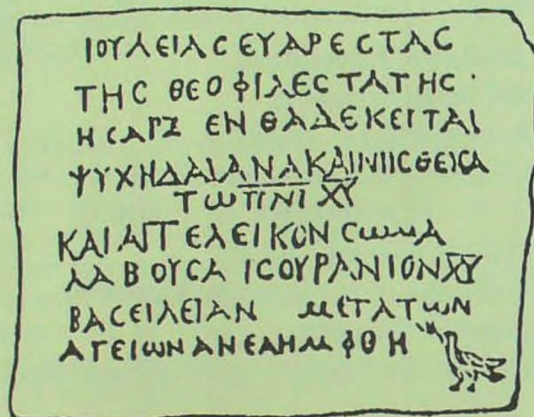 ΙΟΥΛΕΙΑС ΕΥΑΡΕСΤΑС
ΤΗС ΘΕΟΦΙΛΕСΤΑΤΗС ·
Η СΑΡΖ ΕΝΘΑΔΕ ΚΕΙΤΑΙ
ΨΥΧΗ ΔΑΙ ΑΝΑΚΑΙΝΙΙСΘΕΙСΑ
ΤΩ ΠΝΙ ΧΥ
ΚΑΙ ΑΓΓΕΛΕΙΚΟΝ СΩΜΑ
ΛΑΒΟΥСΑ ΙС ΟΥΡΑΝΙΟΝ ΧΥ
ΒΑСΕΙΛΕΙΑΝ ΜΕΤΑ ΤΩΝ
ΑΓΕΙΩΝ ΑΝΕΛΗΜΦΘΗ